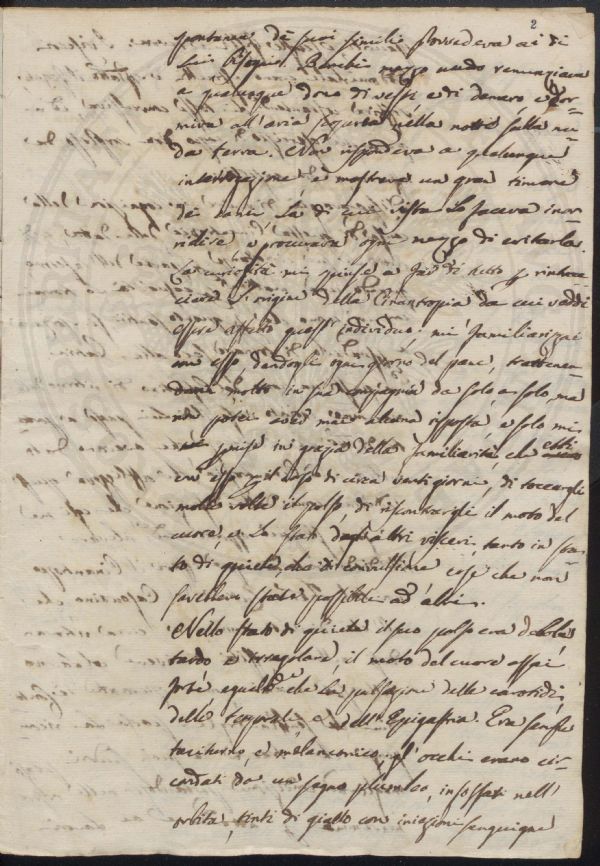 2
spontanea de suoi simili provvedeva ai di
lui Bisogni. Benchè mezzo nudo renunziava
a qualunque dono di vesti e di danaro e dor-
miva all'aria seguità nella notte sulla nu-
da terra. Non rispondeva a qualunque
interrogazione e mostrava un gran timore
de cani la di cui vista lo faceva inor-
ridire e procurava ogni mezzo di evitarla.
La curiosità mi spinse a far di tutto p rintrac-
ciare l'origine della Cinantropia da cui vaddi
essere affetto questo individuo; mi familiarizzai
con esso, dandogli ogni giorno del pane, trattenen-
domi molto in sua compagnia da solo, a solo, ma
non potei mai alcuna risposta, e solo mi
giunse in grazia della familiarità, che ebbi
con esso p il corso di circa venti giorni, di toccargli
molte volte il polso, di riscontrargli il moto del
cuore, e lo stato degli altri visceri, tanto in sta-
to di quiete, che di convulsione cose che non
sarebbero state possibili ad altri.
Nello stato di quiete il suo polso era debole
tardo e irregolare, il moto del cuore assai
forte equelle che la pulsazione delle carotidi,
delle temporali, e dell'Epigastria. Era sempre
taciturno, e melanconico, gl'occhi erano cir-
condati da un segno plumbeo, infossati nell'
orbita, tinti di giallo con iniezioni sanguigne